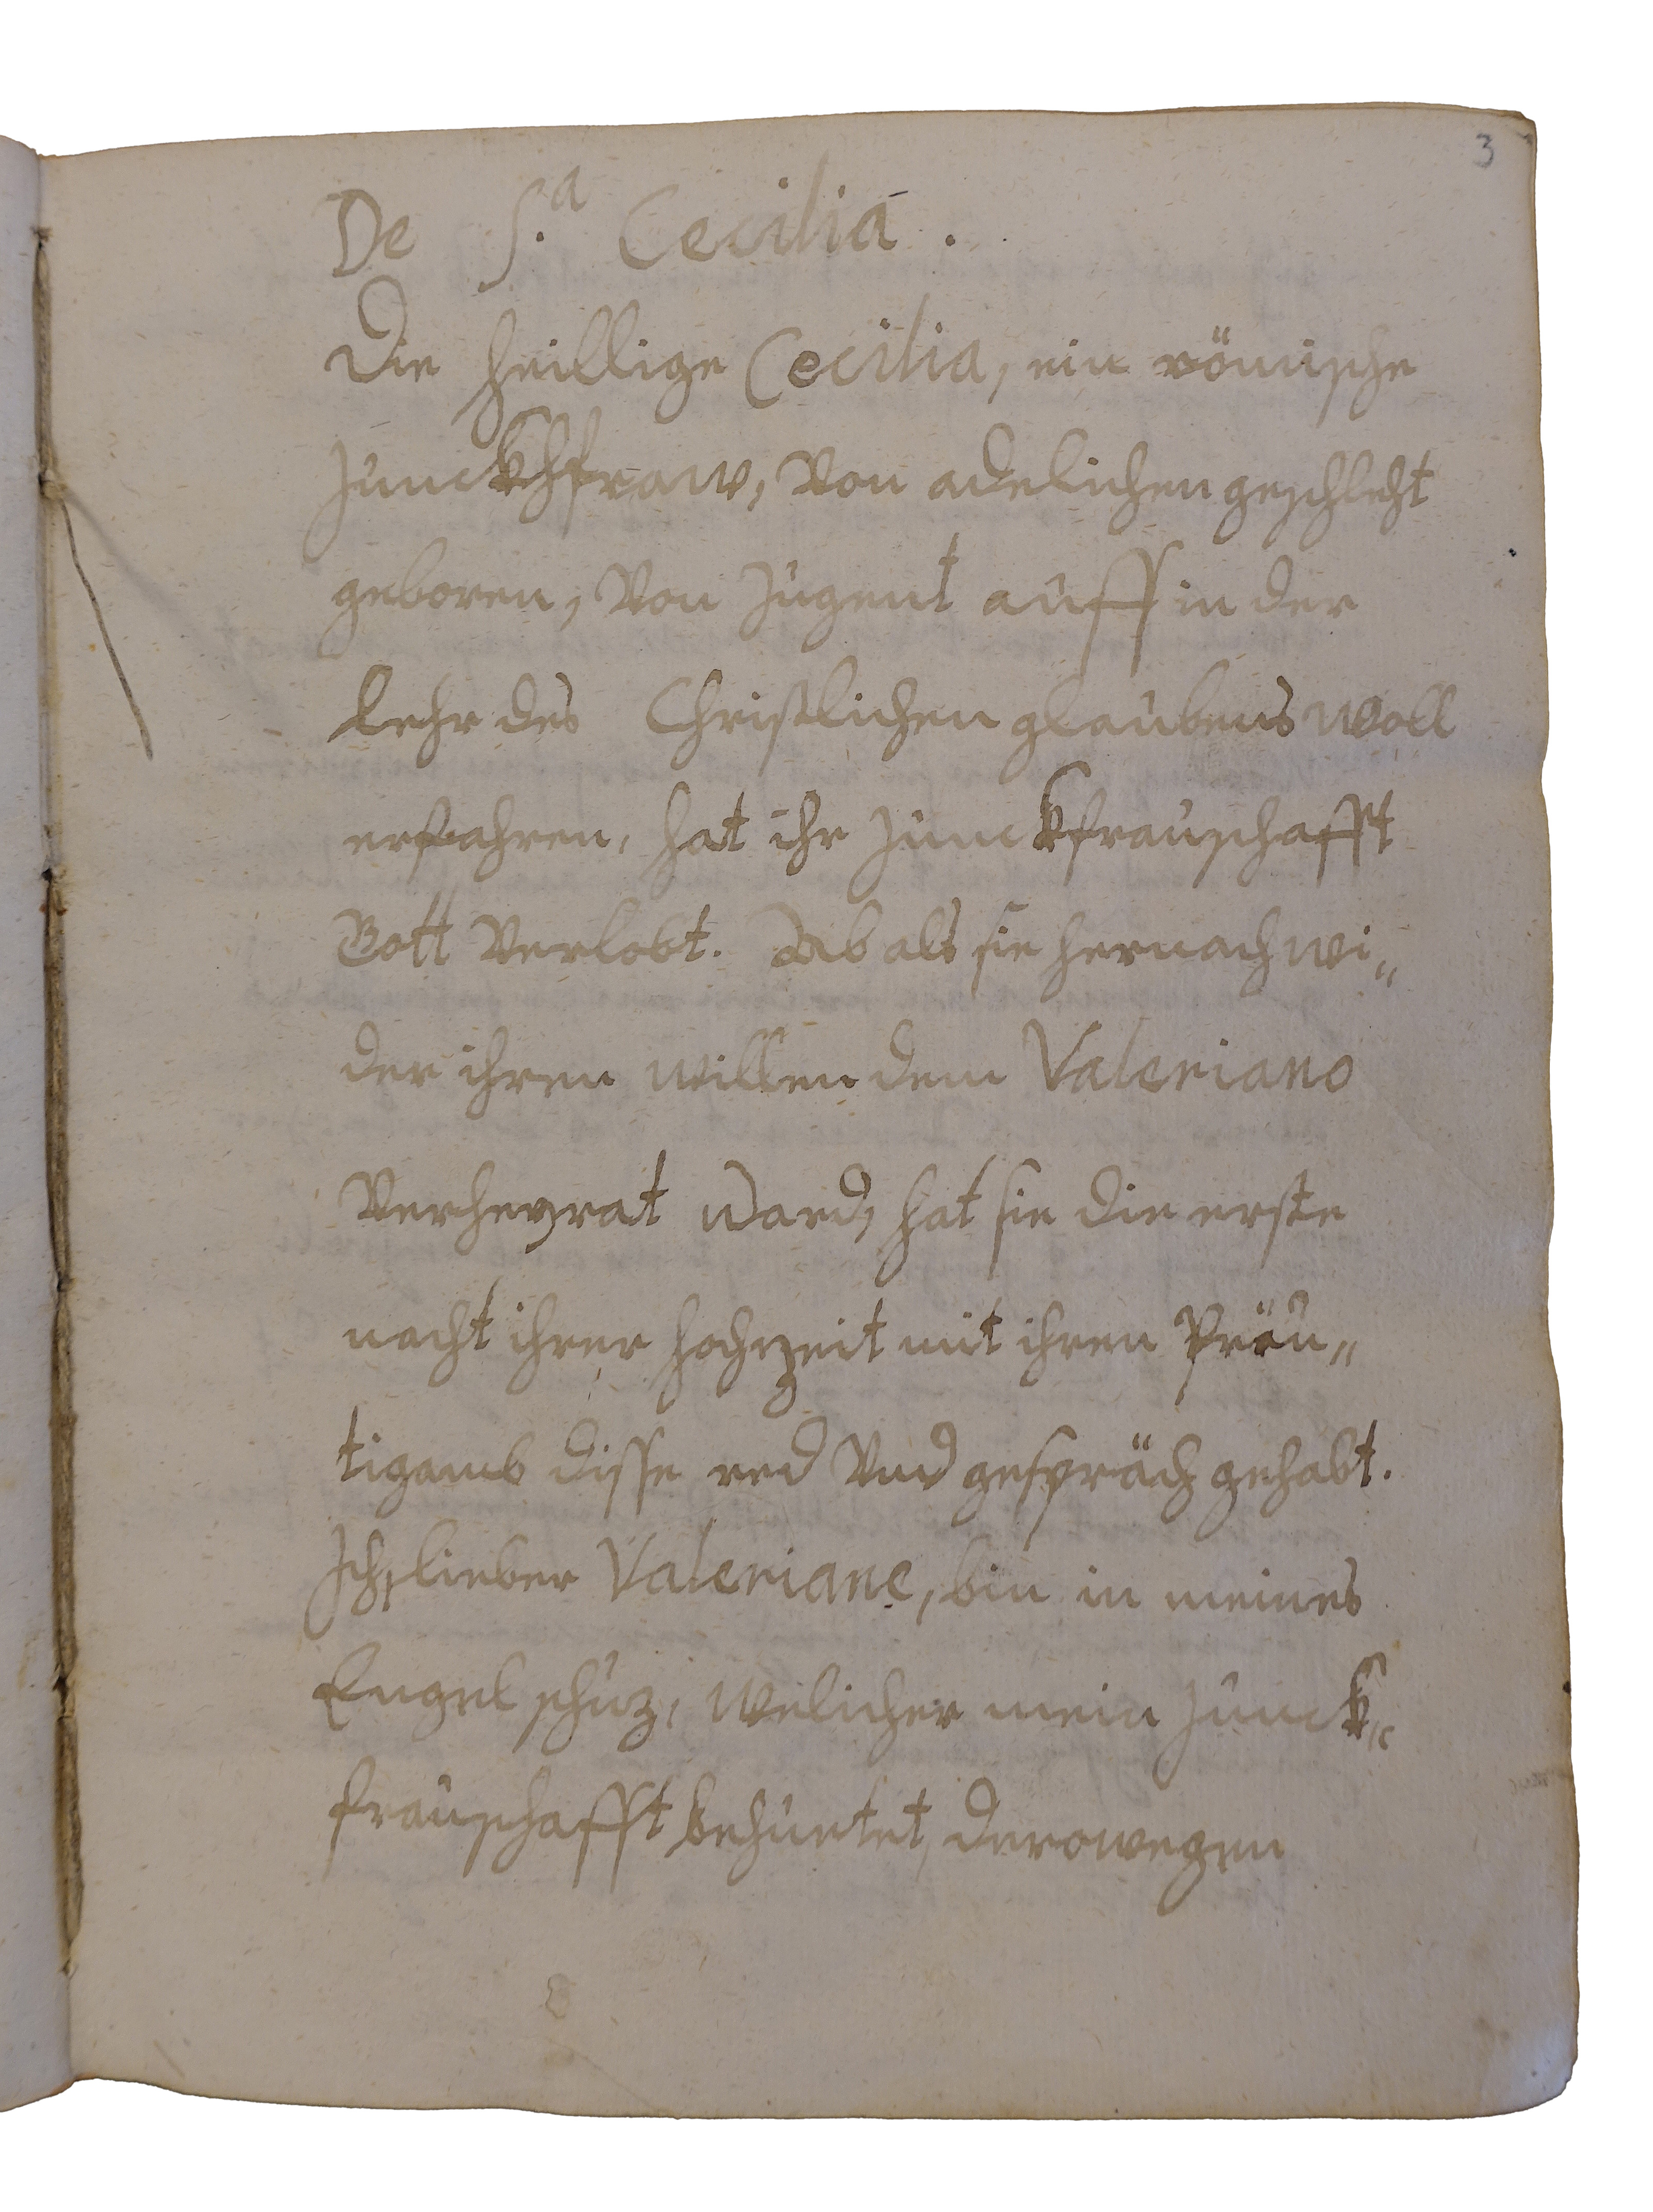 3
De S.a Cecilia.
Die heillige Cecilia, ein römische
Junckhfraw, Von adelichen geschlecht
geboren, Von Jugent auff in der
lehr des Christlichen glaubens woll
erfahren, hat ihr Junckfrauschafft
Gott Verlobt. als sie hernach wi„
der ihren willen dem Valeriano
Verheyrat ward, hat sie die erste
nacht ihrer hochzeit mit ihren Präu„
tigamb disse red Vnd gespräch gehabt.
Ich, lieber Valeriane, bin in meines
Engel schuz, welicher mein Junck„
frauschafft behüetet, derowegen